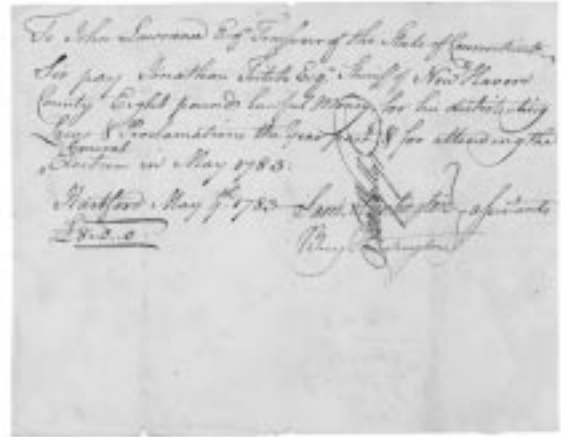 To John Lawrence Esqr Treasurer of the State of Connecticut
Sir pay Jonathan Fitch Esqr Sheriff of New Haven
County Eight pounds lawful Money for his distributing
Laws & Proclamations the Year past, & for attending the
General
Election in May 1783.
Hartford May 1783 Assistants
£8..0..0
Benj Huntington